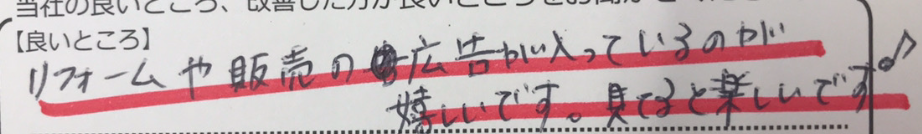 当社の良いところ、改善した方が良いところをお聞かせください
【良いところ】
リフォームや販売の広告が入っているのが
嬉しいです。見てると楽しいです♪